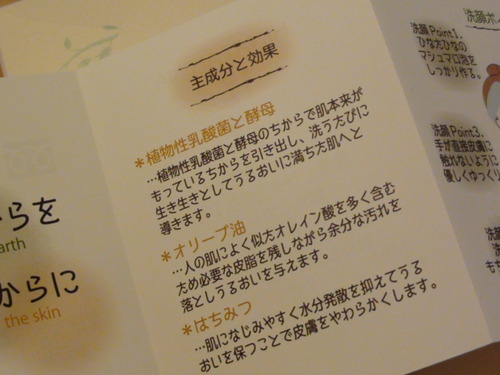 主成分と効果
*植物性乳酸菌と酵母
…植物性乳酸菌と酵母のちからで肌本来が
もっているちからを引き出し、洗うたびに
生き生きとしてうるおいに満ちた肌へと
導きます。
*オリーブ油
…人の肌によく似たオレイン酸を多く含む
ため必要な皮脂を残しながら余分な汚れを
落としうるおいを与えます。
*はちみつ
…肌になじみやすく水分発散を抑えてうる
おいを保つことで皮膚をやわらかくします。
らを
arth
からに
the skin
洗顔ポ
洗顔Point1.
ひなたひなの
マシュマロ泡を
しっかり作る。
洗顔Point3.
手が直接皮膚に
触れないように
優しくゆっくり
洗顔